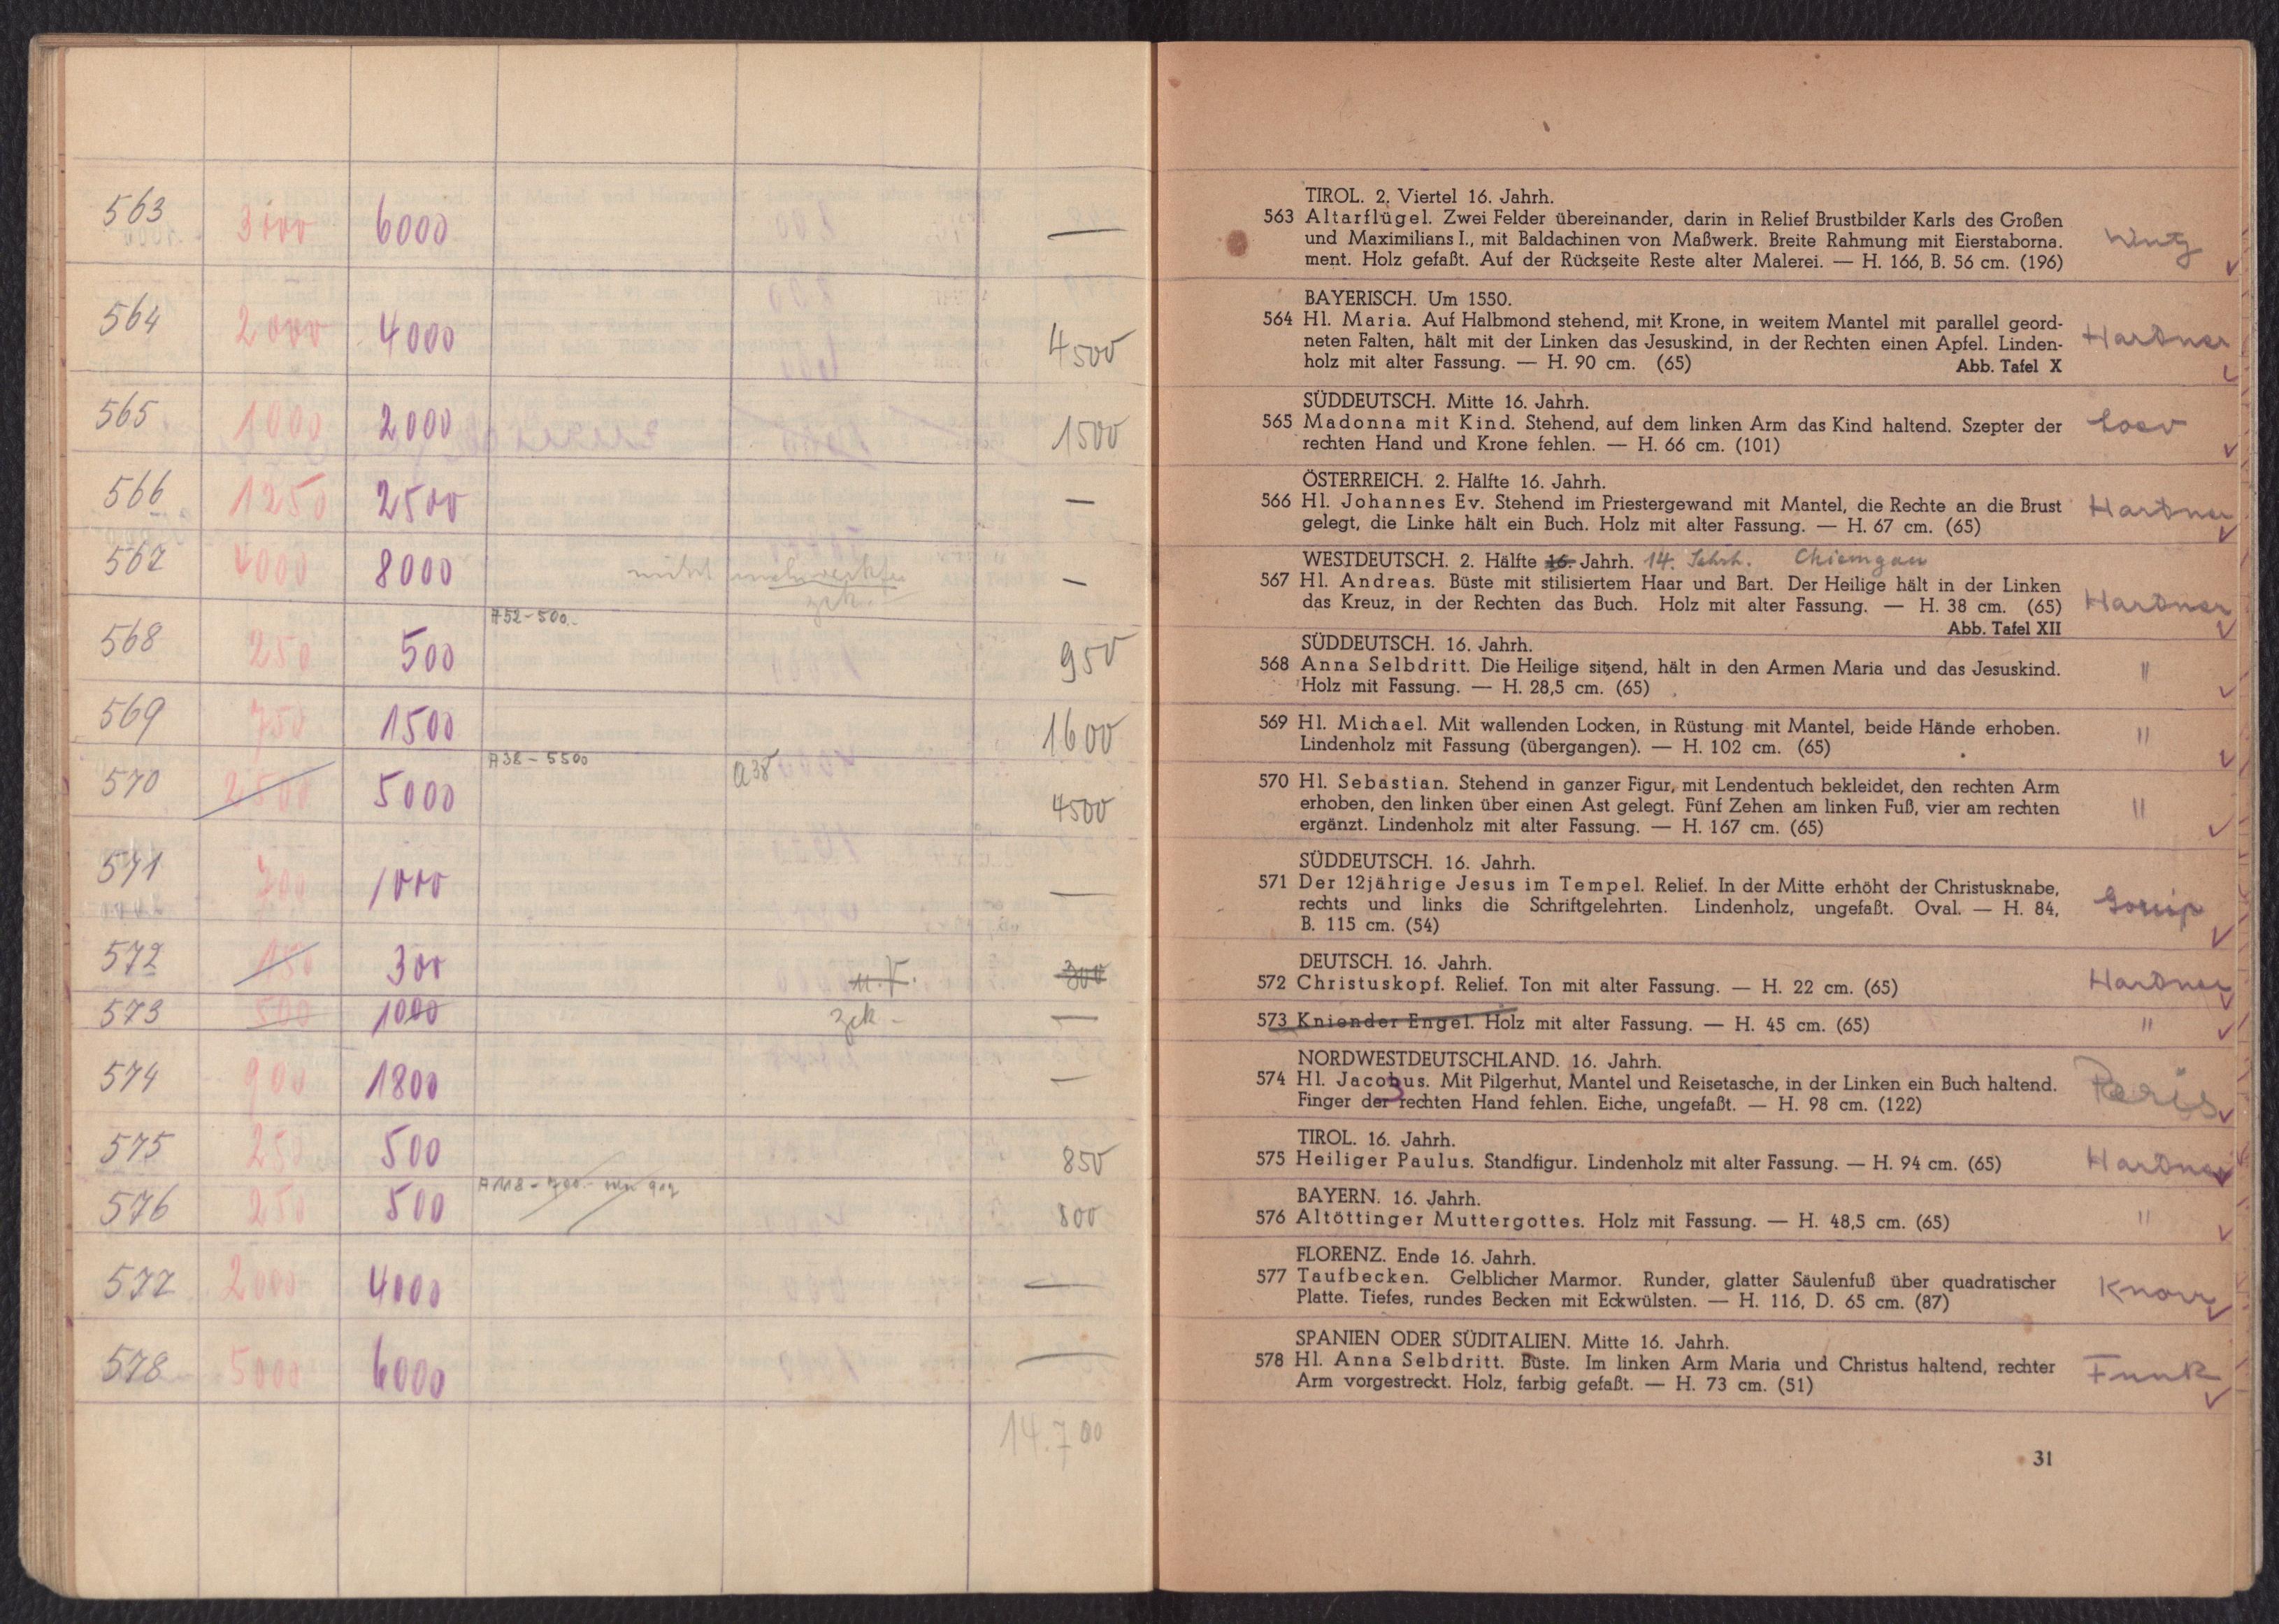 563 3000 6000 —
564 2000 4000 4500
565 1000 2000 1500
566 1250 2500 —
567 4000 8000 nicht —
zck.
A52-500.-
568 250 500 950
569 750 1500 1600
A38-5500 A38
570 2500 5000 4500
571 1000 —
572 150 300 300
573 500 1000 zck- —
574 900 1800 —
575 250 500 850
A118-700.-
576 250 500 800
577 2000 4000 —
578 5000 6000 —
14.700
TIROL. 2. Viertel 16. Jahrh.
563 Altarflügel. Zwei Felder übereinander, darin in Relief Brustbilder Karls des Großen
und Maximilians I., mit Baldachinen von Maßwerk. Breite Rahmung mit Eierstaborna-
ment. Holz gefaßt. Auf der Rückseite Reste alter Malerei. — H. 166, B. 56 cm. (196)
BAYERISCH. Um 1550.
564 Hl. Maria. Auf Halbmond stehend, mit Krone, in weitem Mantel mit parallel geord- Hartner
neten Falten, hält mit der Linken das Jesuskind, in der Rechten einen Apfel. Linden-
holz mit alter Fassung. — H. 90 cm. (65) Abb. Tafel X
SÜDDEUTSCH. Mitte 16. Jahrh.
565 Madonna mit Kind. Stehend, auf dem linken Arm das Kind haltend. Szepter der
rechten Hand und Krone fehlen. — H. 66 cm. (101)
ÖSTERREICH. 2. Hälfte 16. Jahrh.
566 Hl. Johannes Ev. Stehend im Priestergewand mit Mantel, die Rechte an die Brust Hartner
gelegt, die Linke hält ein Buch. Holz mit alter Fassung. — H. 67 cm. (65)
WESTDEUTSCH. 2. Hälfte 16. Jahrh. 14. Jahrh. Chiemgau
567 Hl. Andreas. Büste mit stilisiertem Haar und Bart. Der Heilige hält in der Linken
das Kreuz, in der Rechten das Buch. Holz mit alter Fassung. — H. 38 cm. (65) Hartner
Abb. Tafel XII
SÜDDEUTSCH. 16. Jahrh.
568 Anna Selbdritt. Die Heilige sitzend, hält in den Armen Maria und das Jesuskind. "
Holz mit Fassung. — H. 28,5 cm. (65)
569 Hl. Michael. Mit wallenden Locken, in Rüstung mit Mantel, beide Hände erhoben. "
Lindenholz mit Fassung (übergangen). — H. 102 cm. (65)
570 Hl. Sebastian. Stehend in ganzer Figur, mit Lendentuch bekleidet, den rechten Arm
erhoben, den linken über einen Ast gelegt. Fünf Zehen am linken Fuß, vier am rechten "
ergänzt. Lindenholz mit alter Fassung. — H. 167 cm. (65)
SÜDDEUTSCH. 16. Jahrh.
571 Der 12jährige Jesus im Tempel. Relief. In der Mitte erhöht der Christusknabe,
rechts und links die Schriftgelehrten. Lindenholz, ungefaßt. Oval. — H. 84,
B. 115 cm. (54)
DEUTSCH. 16. Jahrh.
572 Christuskopf. Relief. Ton mit alter Fassung. — H. 22 cm. (65) Hartner
573 Kniender Engel. Holz mit alter Fassung. — H. 45 cm. (65) "
NORDWESTDEUTSCHLAND. 16. Jahrh.
574 Hl. Jacobus. Mit Pilgerhut, Mantel und Reisetasche, in der Linken ein Buch haltend.
Finger der rechten Hand fehlen. Eiche, ungefaßt. — H. 98 cm. (122)
TIROL. 16. Jahrh.
575 Heiliger Paulus. Standfigur. Lindenholz mit alter Fassung. — H. 94 cm. (65) Hartner
BAYERN. 16. Jahrh.
576 Altöttinger Muttergottes. Holz mit Fassung. — H. 48,5 cm. (65) "
FLORENZ. Ende 16. Jahrh.
577 Taufbecken. Gelblicher Marmor. Runder, glatter Säulenfuß über quadratischer Knorr
Platte. Tiefes, rundes Becken mit Eckwülsten. — H. 116, D. 65 cm. (87)
SPANIEN ODER SÜDITALIEN. Mitte 16. Jahrh.
578 Hl. Anna Selbdritt. Büste. Im linken Arm Maria und Christus haltend, rechter Funk
Arm vorgestreckt. Holz, farbig gefaßt. — H. 73 cm. (51)
31